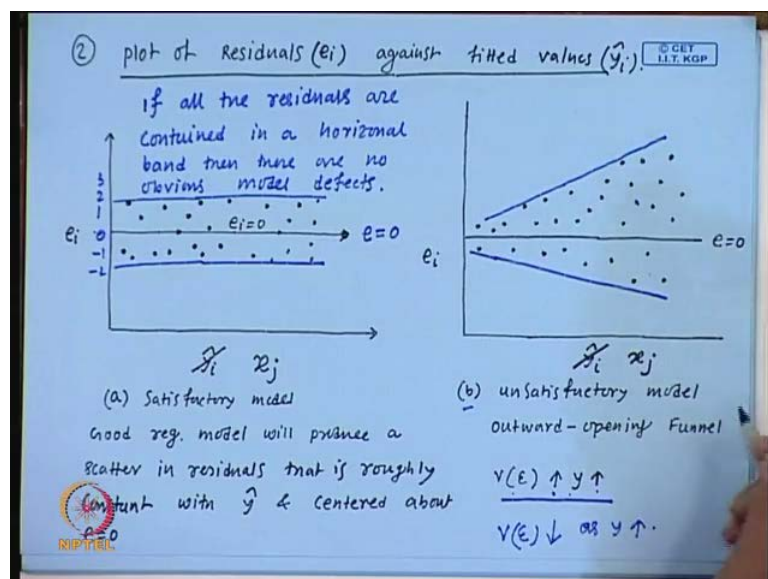 ② plot of Residuals (ei) against fitted values (ŷi).
© CET
I.I.T. KGP
If all the residuals are
contained in a horizonal
band then there are no
obvious model defects.
3
2
1
0
-1
-2
ei
ei=0
e=0
ŷi xj
(a) Satisfactory model
Good reg. model will produce a
scatter in residuals that is roughly
constant with ŷ & centered about
e=0
ei
e=0
ŷi xj
(b) unsatisfactory model
outward-opening Funnel
V(ε) ↑ y ↑
V(ε) ↓ as y ↑.
NPTEL